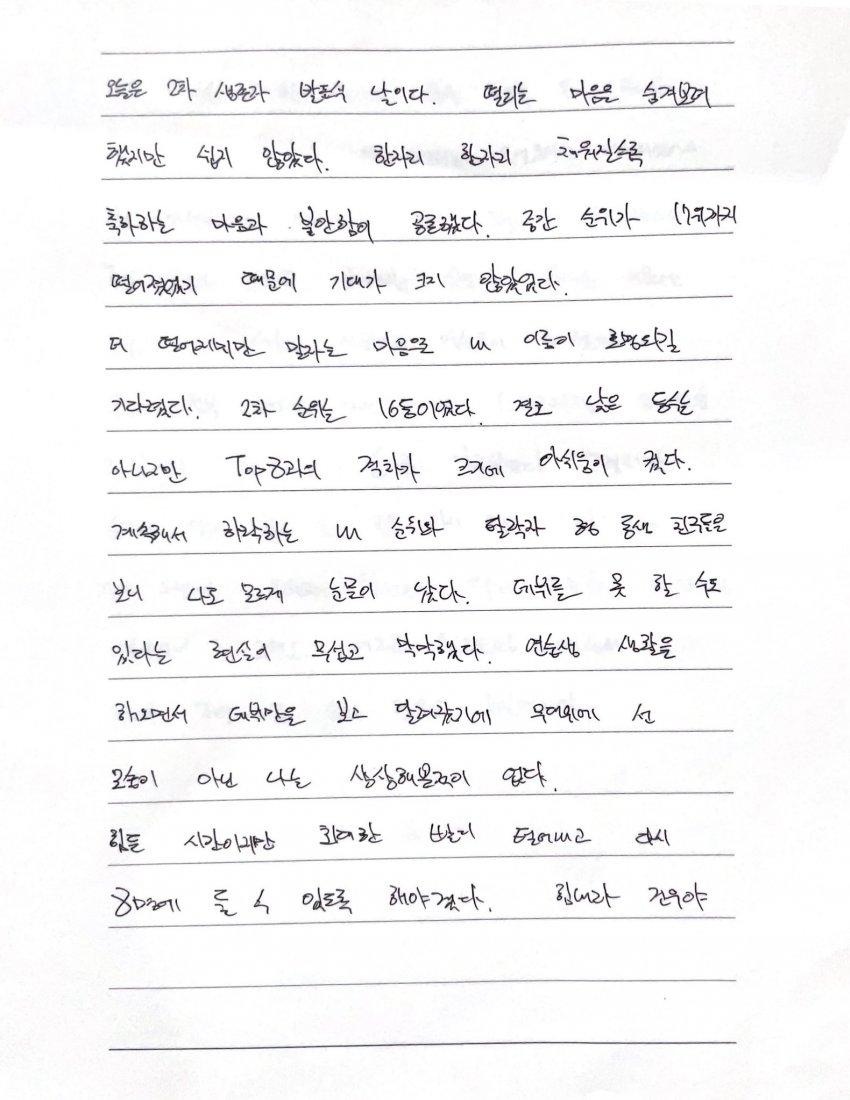 오늘은 2차 생존자 발표식 날이다. 떨리는 마음을 숨겨보려
했지만 쉽지 않았다. 한자리 한자리 채워질수록
축하하는 마음과 불안함이 공존했다. 중간 순위가 17위까지
떨어졌었기 때문에 기대가 크지 않았었다.
더 떨어지지만 말라는 마음으로 내 이름이 호명되길
기다렸다. 2차 순위는 16등이었다. 결코 낮은 등수는
아니지만 Top8과의 격차가 크기에 아쉬움이 컸다.
계속해서 하락하는 내 순위와 탈락자 형 동생 친구들을
보니 나도 모르게 눈물이 났다. 데뷔를 못 할 수도
있다는 현실이 무섭고 막막했다. 연습생 생활을
하면서 데뷔만을 보고 달려왔기에 무대위에 선
모습이 아닌 나는 상상해본적이 없다.
힘든 시간이지만 최대한 빨리 털어내고 다시
8명에 들 수 있도록 해야겠다. 힘내라 건우야